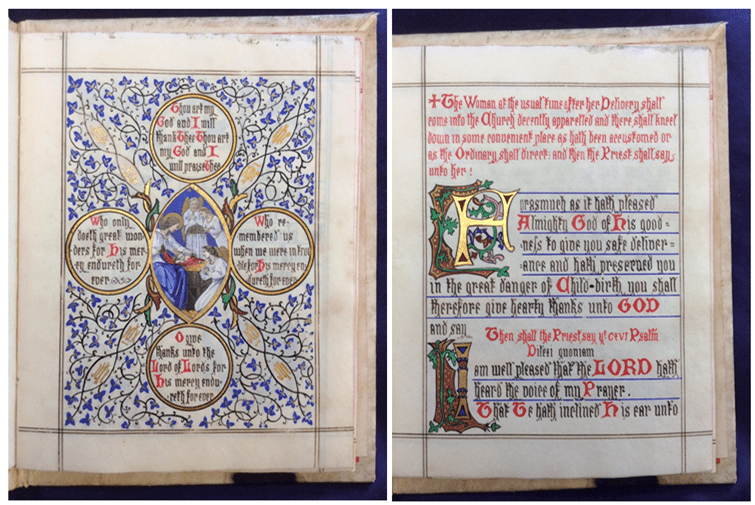 Thou art my
God and I will
thank Thee Thou art
my God and I
will praise thee
Who only
doeth great won
ders for His mer
cy endureth for
ever
Who re-
membered us
when we were in trou
ble for His mercy en
dureth for ever
O give
thanks unto the
Lord of Lords for
His mercy endu-
reth for ever
+ The Woman at the usual time after her Delivery shall
come into the Church decently apparelled and there shall kneel
down in some convenient place as hath been accustomed or
as the Ordinary shall direct: and then the Priest shall say
unto her:
Forasmuch as it hath pleased
Almighty God of His good=
=ness to give you safe deliver=
=ance and hath preserved you
in the great danger of Child-birth you shall
therefore give hearty thanks unto GOD
and say
Then shall the Priest say ye CXVI Psalm
Dilexi quoniam
I am well pleased that the LORD hath
heard the voice of my Prayer.
That He hath inclined His ear unto